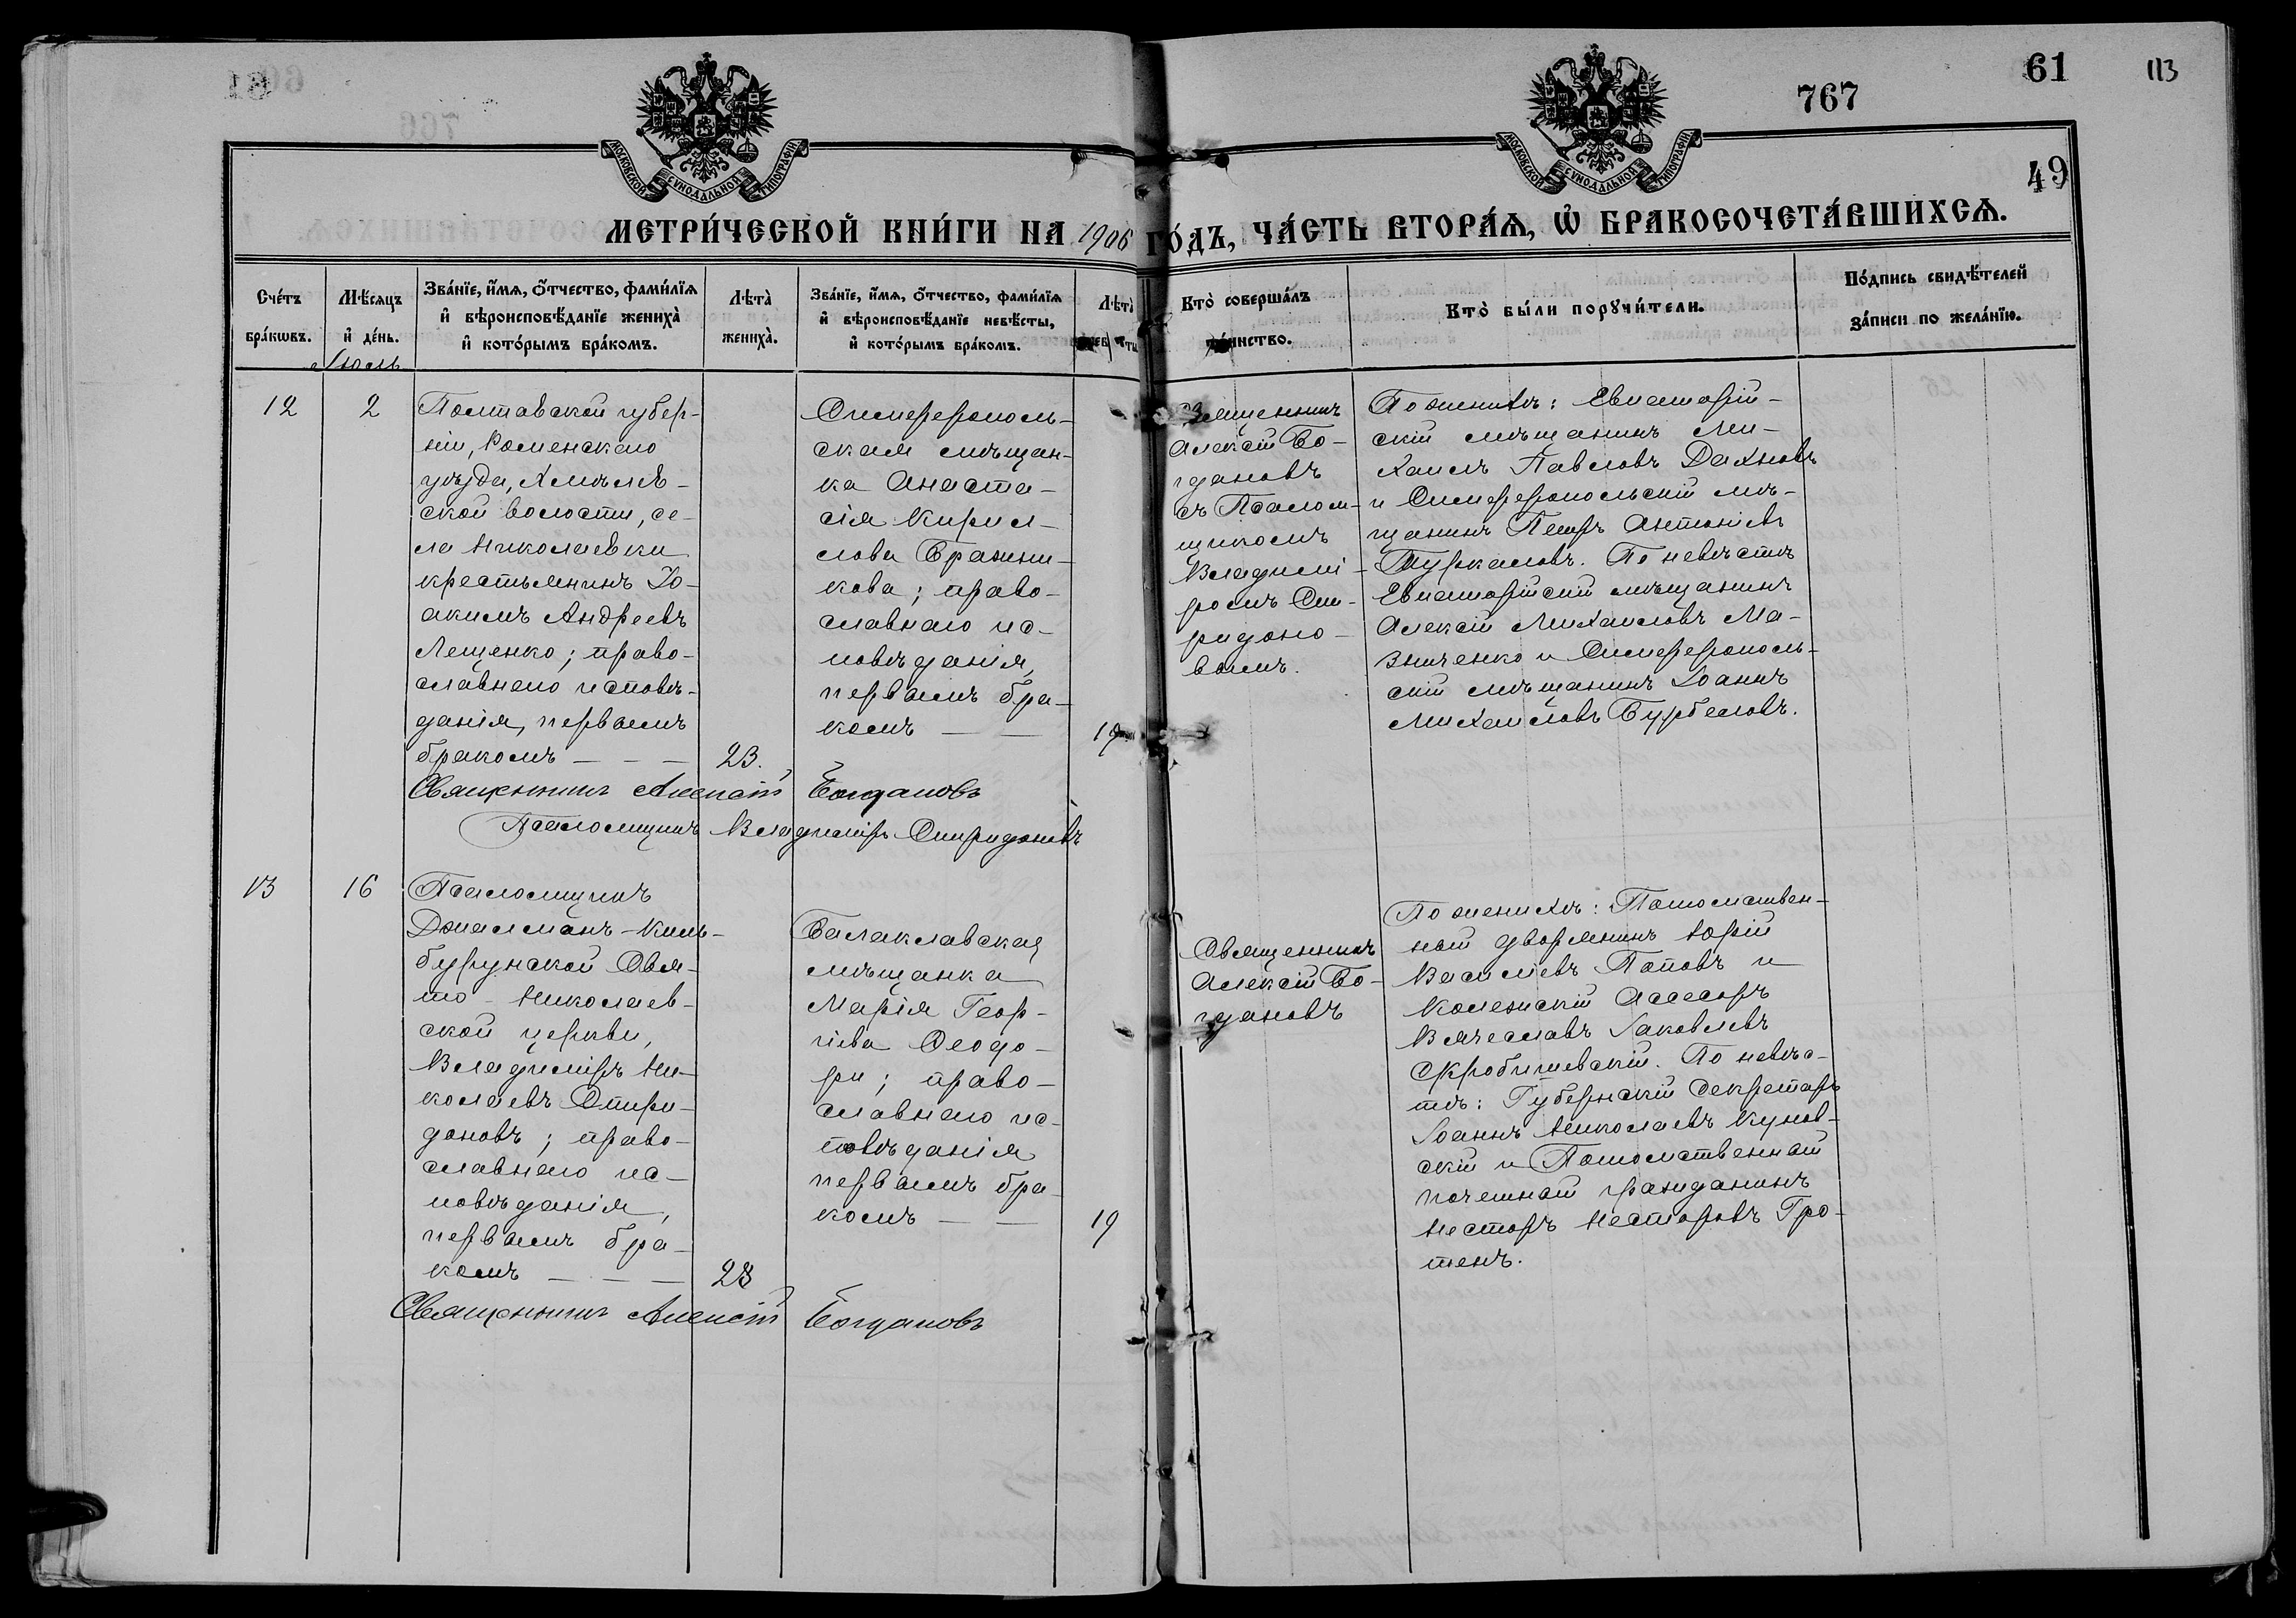 61
113
767
49
МОСКОВСКОЙ СѴНОДАЛЬНОЙ ТИПОГРАФІИ
МОСКОВСКОЙ СѴНОДАЛЬНОЙ ТИПОГРАФІИ
МЕТРИ́ЧЕСКОЙ КНИ́ГИ НА 1906 ГО́ДЪ, ЧА́СТЬ ВТОРА́Я, Ѡ҆ БРАКОСОЧЕТА́ВШИХСЯ.
Сче́тъ
бра́кωвъ.
Мѣ́сяцъ
и҆ де́нь.
Зва́нїе, и҆́мя, ѻ҆́тчество, фами́лїя
и҆ вѣроисповѣ́данїе жениха̀
и҆ кото́рымъ бра́комъ.
Лѣта̀
жениха̀.
Зва́нїе, и҆́мя, ѻ҆́тчество, фами́лїя
и҆ вѣроисповѣ́данїе невѣ́сты,
и҆ кото́рымъ бра́комъ.
Лѣта̀
Кто̀ соверша́лъ
та́инство.
Кто̀ бы́ли порꙋчи́тели.
По́дпись свидѣ́телей
за́писи по жела́нїю.
Іюль
12
2
Полтавской губер-
ніи, Роменскаго
уѣзда, Хмѣлев-
ской волости, се-
ла Николаевки
крестьянинъ Іо-
акимъ Андреевъ
Лещенко; право-
славнаго исповѣ-
данія, первымъ
бракомъ — — —
23.
Симферополь-
ская мѣщан-
ка Анаста-
сія Кирил-
лова Бражни-
кова; право-
славнаго ис-
повѣданія,
первымъ бра-
комъ — —
19
Священникъ
Алексій Бо-
гдановъ
съ Псалом-
щикомъ
Владимі-
ромъ Спи-
ридоно-
вымъ.
По женихѣ: Евпаторій-
скій мѣщанинъ Ми-
хаилъ Павловъ Дахновъ
и Симферопольскій мѣ-
щанинъ Петръ Антоніевъ
Туркаловъ. По невѣстѣ
Евпаторійскій мѣщанинъ
Алексій Михаиловъ Ма-
зниченко и Симферополь-
скій мѣщанинъ Іоаннъ
Михаиловъ Бурбеловъ.
Священникъ Алексій Богдановъ
Псаломщикъ Владиміръ Спиридоновъ
13
16
Псаломщикъ
Джалманъ-Киль-
бурунской Свя-
то-Николаев-
ской церкви,
Владиміръ Ни-
колаевъ Спири-
доновъ; право-
славнаго ис-
повѣданія,
первымъ бра-
комъ — — —
28
Балаклавская
мѣщанка
Марія Геор-
гіева Ѳеодо-
ри; право-
славнаго ис-
повѣданія
первымъ бра-
комъ — —
19
Священникъ
Алексій Бо-
гдановъ
По женихѣ: Потомствен-
ный дворянинъ Юрій
Василіевъ Поповъ и
Колежскій Ассесоръ
Вячеславъ Іаковлевъ
Скробишевскій. По невѣс-
тѣ: Губернскій Секретарь
Іоаннъ Николаевъ Кунов-
скій и Потомственный
почетный гражданинъ
Несторъ Несторовъ Гро-
тенъ.
Священникъ Алексій Богдановъ